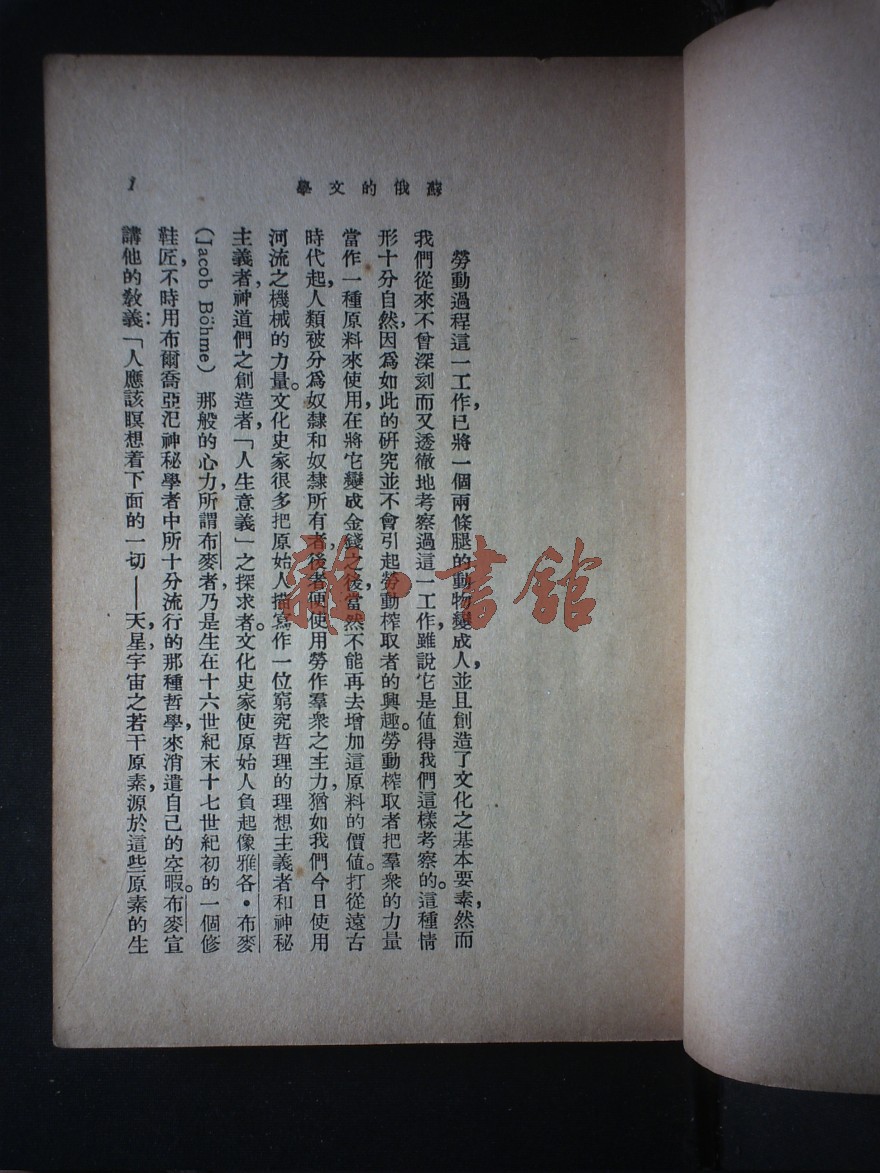 蘇俄的文學
1
勞動過程這一工作，已將一個兩條腿的動物變成人，並且創造了文化之基本要素，然而
我們從來不曾深刻而又透徹地考察過這一工作，雖說它是值得我們這樣考察的。這種情
形十分自然，因爲如此的研究並不會引起勞動榨取者的興趣。勞動榨取者把羣衆的力量
當作一種原料來使用，在將它變成金錢之後，當然不能再去增加這原料的價值。打從遠古
時代起，人類被分爲奴隸和奴隸所有者，後者便使用勞作羣衆之主力，猶如我們今日使用
河流之機械的力量。文化史家很多把原始人描寫作一位窮究哲理的理想主義者和神秘
主義者，神道們之創造者，「人生意義」之探求者。文化史家使原始人負起像雅各·布麥
(Jacob Böhme) 那般的心力，所謂布麥者，乃是生在十六世紀末十七世紀初的一個修
鞋匠，不時用布爾喬亞氾神秘學者中所十分流行的那種哲學，來消遣自己的空暇。布麥宣
講他的教義：「人應該瞑想着下面的一切——天，星，宇宙之若干原素，源於這些原素的生
雜·書館